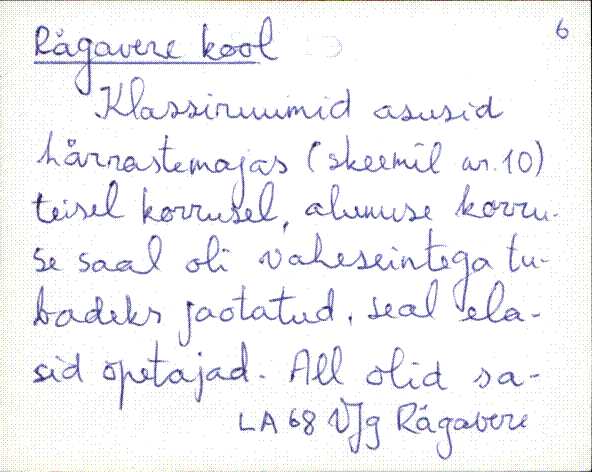 6
Rägavere kool
Klassiruumid asusid
härrastemajas (skeemil nr. 10)
teisel korrusel, alumise korru-
se saal oli vaheseintega tu-
badeks jaotatud, seal ela-
sid õpetajad. All olid sa-
LA 68 VJg Rägavere